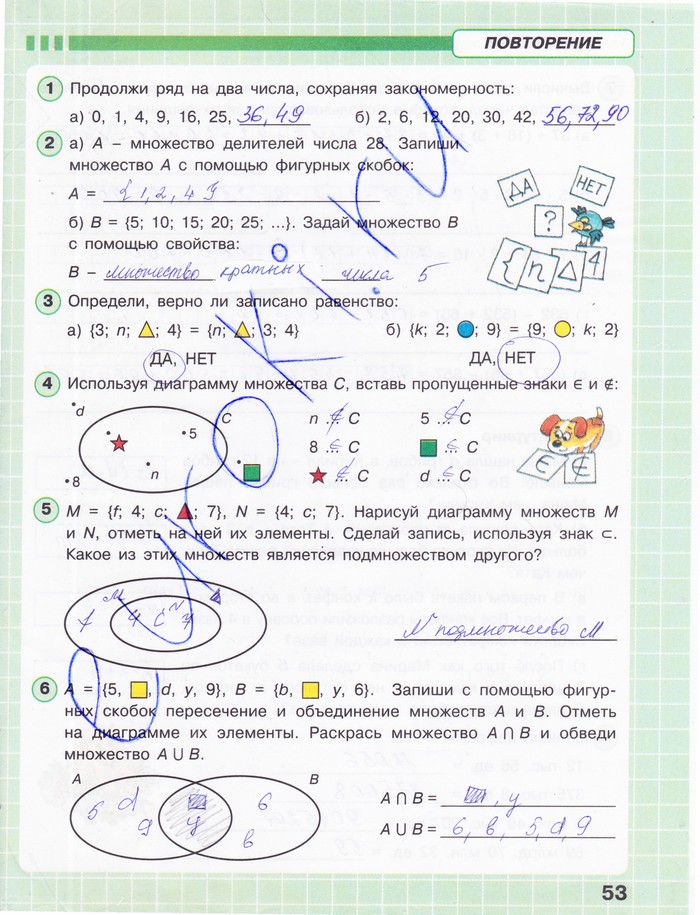 ПОВТОРЕНИЕ
1 Продолжи ряд на два числа, сохраняя закономерность:
а) 0, 1, 4, 9, 16, 25, 36, 49 б) 2, 6, 12, 20, 30, 42, 56, 72, 90
2 а) A – множество делителей числа 28. Запиши
множество A с помощью фигурных скобок:
A = {1, 2, 4
ДА НЕТ
?
б) B = {5; 10; 15; 20; 25; ...}. Задай множество B
с помощью свойства:
{ n △ 4
B – множество кратных числа 5
3 Определи, верно ли записано равенство:
а) {3; n; △; 4} = {n; △; 3; 4} б) {k; 2; ●; 9} = {9; ●; k; 2}
ДА, НЕТ ДА, НЕТ
4 Используя диаграмму множества C, вставь пропущенные знаки ∈ и ∉:
d C n ∉ C 5 ... C
5 8 ∈ C ■ ∈ C
n ★ ... C d ... C
8
∈ ∉
5 M = {f; 4; c; ▲; 7}, N = {4; c; 7}. Нарисуй диаграмму множеств M
и N, отметь на ней их элементы. Сделай запись, используя знак ⊂.
Какое из этих множеств является подмножеством другого?
M N
7 4 c 7
N подмножество M
6 A = {5, ■, d, y, 9}, B = {b, ■, y, 6}. Запиши с помощью фигур-
ных скобок пересечение и объединение множеств A и B. Отметь
на диаграмме их элементы. Раскрась множество A ∩ B и обведи
множество A ∪ B.
A B
5 d 9 y 6 в
A ∩ B = ■, y
A ∪ B = 6, в, 5, d, 9
53